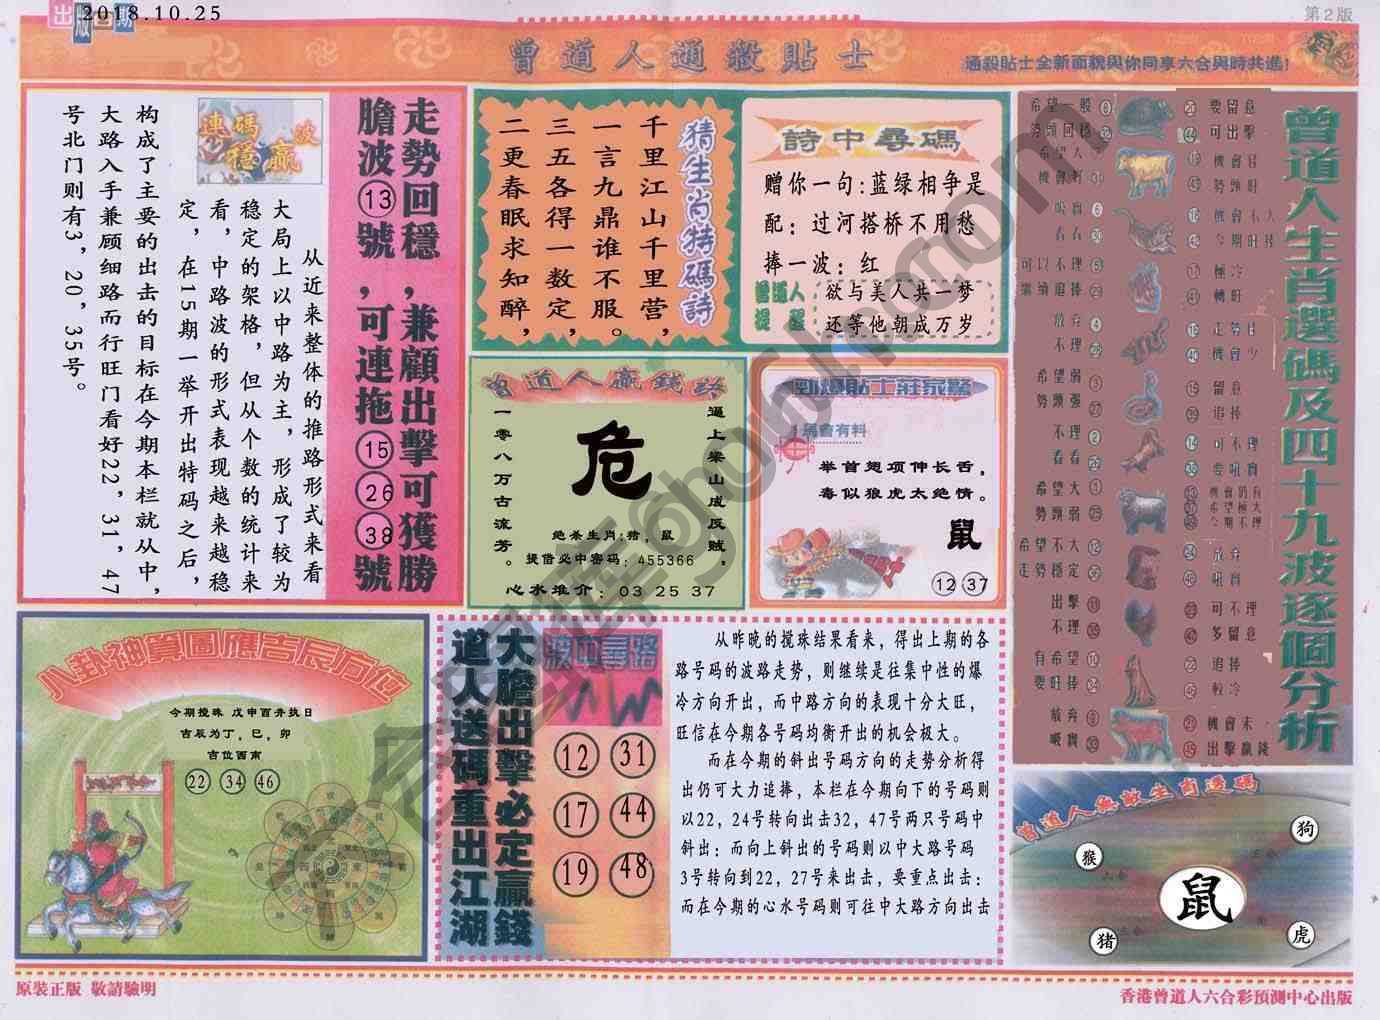 出版日期
2018.10.25
第2版
曾道人通殺貼士
通殺貼士全新面貌與你同享六合與時共進!
走勢回穩,兼顧出擊可獲勝
膽波⑬號,可連拖⑮㉖㊳號
連碼波
穩贏
从近来整体的推路形式来看
大局上以中路为主,形成了较为
稳定的架格,但从个数的统计来
看,中路波的形式表现越来越稳
定,在15期一举开出特码之后,
构成了主要的出击的目标在今期本栏就从中,
大路入手兼顾细路而行旺门看好22,31,47
号北门则有3,20,35号。
猜生肖特碼詩
千里江山千里营,
一言九鼎谁不服。
三五各得一数定,
二更春眠求知醉,
詩中尋碼
赠你一句:蓝绿相争是
配:过河搭桥不用愁
捧一波:红
曾道人
提醒
欲与美人共一梦
还等他朝成万岁
曾道人贏錢路
逼上梁山成反贼,
一零八万古流芳。
危
绝杀生肖:猪,鼠
提借必中密码:455366
心水推介:03 25 37
勁爆貼士莊家驚
馬會有料
举首翘项伸长舌,
毒似狼虎太绝情。
鼠
12 37
曾道人生肖選碼及四十九波逐個分析
希望一般
勢頭回穩
要留意
可出擊
希望人
機會好
機會好
勢頭旺
吸實
看看
機會不大
今期旺捧
可以不理
繼續追捧
極冷
轉旺
放弃
不理
走勢佳
機會少
希望弱
勢頭强
留意
追捧
不理
看看
可不理
要吼實
希望大
勢頭弱
機會仍有
希望極大
今期不理
希望不大
走勢穩定
放弃
吼肖
出擊
不理
可不理
多留意
有希望
要旺捧
追捧
較冷
放弃
吸實
機會末
出擊贏錢
八卦神算圖應吉辰方位
今期搅珠 戊申酉舟执日
吉辰为丁,巳,卯
吉位西南
22 34 46
大膽出擊必定贏錢
道人送碼重出江湖
波中尋路
12 31
17 44
19 48
从昨晚的搅珠结果看来,得出上期的各
路号码的波路走势,则继续是往集中性的爆
冷方向开出,而中路方向的表现十分大旺,
旺信在今期各号码均衡开出的机会极大。
而在今期的斜出号码方向的走势分析得
出仍可大力追捧,本栏在今期向下的号码则
以22,24号转向出击32,47号两只号码中
斜出:而向上斜出的号码则以中大路号码
3号转向到22,27号来出击,要重点出击:
而在今期的心水号码则可往中大路方向出击
曾道人無敵生肖選碼
狗
猴
鼠
猪
虎
原裝正版 敬請驗明
香港曾道人六合彩預測中心出版